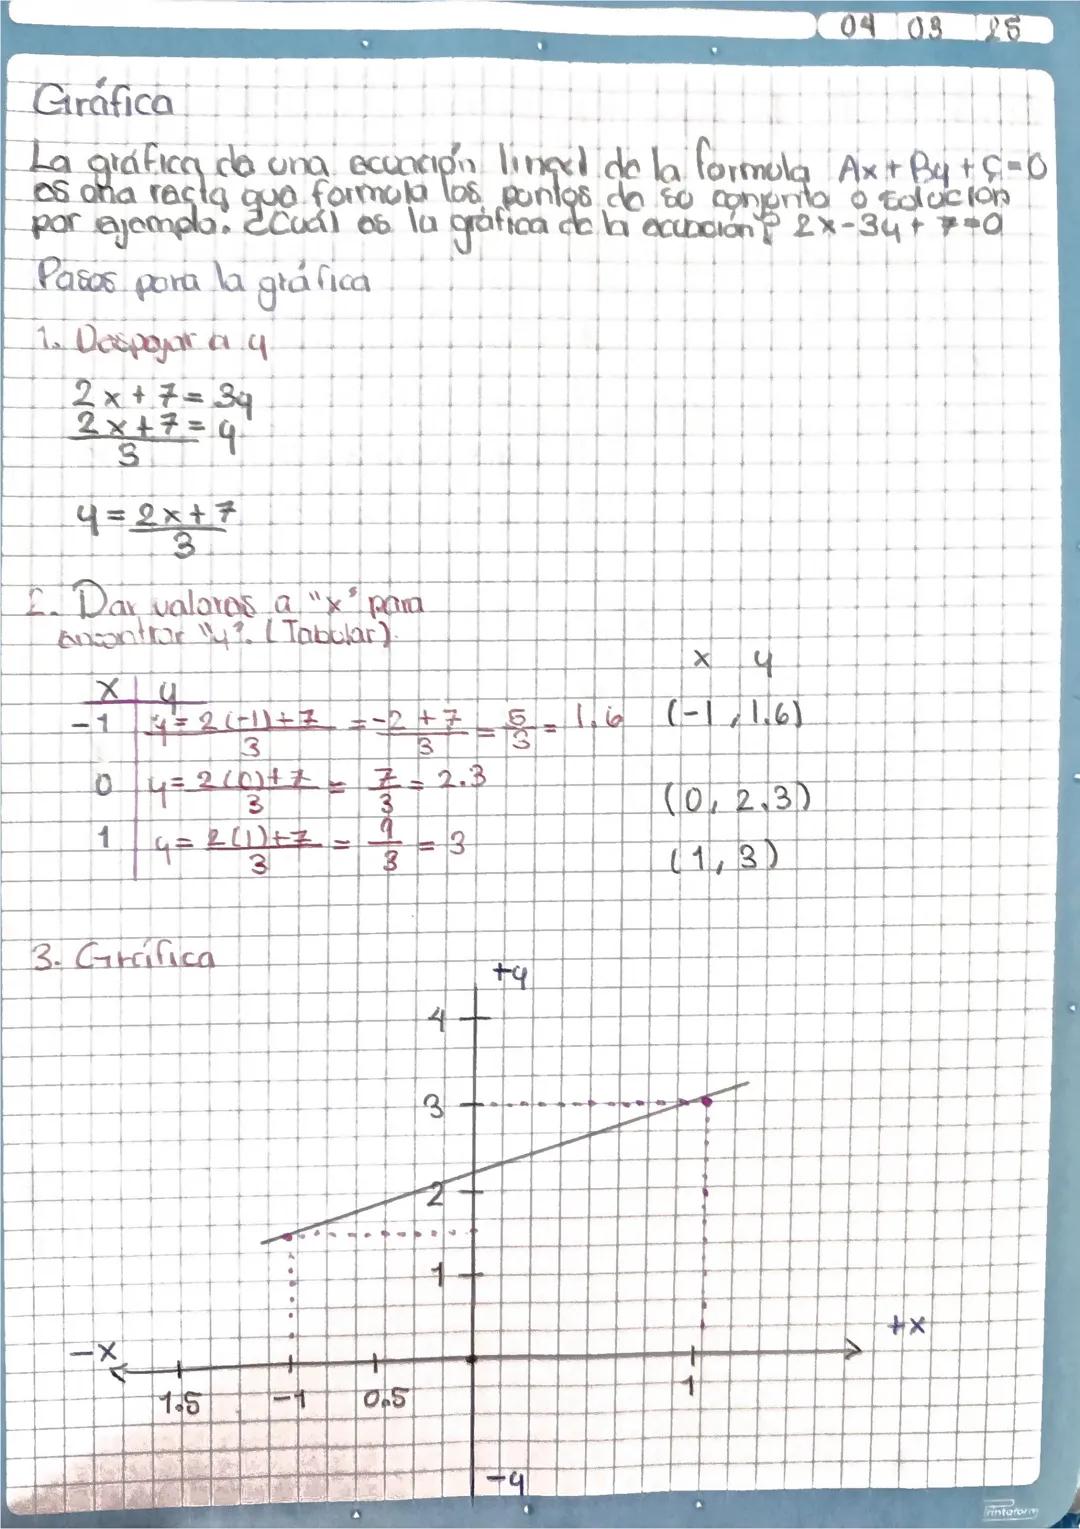 04 03 25
Gráfica
La gráfica de una ecuación lineal de la formula Ax + By + C = 0
es una recta que formula los puntos de su conjunto o solución
por ejemplo. ¿Cuál es la gráfica de la ecuación? 2x - 3y + 7 = 0
Pasos para la gráfica
1. Despejar a y
2x + 7 = 3y
2x + 7 = y
3
y = 2x + 7
3
2. Dar valores a "x" para
encontrar "y". (Tabular).
x y
x y
-1 y = 2(-1)+7 = -2 + 7 = 5 = 1.6 (-1, 1.6)
3 3 3
0 y = 2(0)+7 = 7 = 2.3 (0, 2.3)
3 3
1 y = 2(1)+7 = 9 = 3 (1, 3)
3 3
3. Gráfica
+y
4
3
2
1
+x
-x
1.5 -1 0.5 1
-y